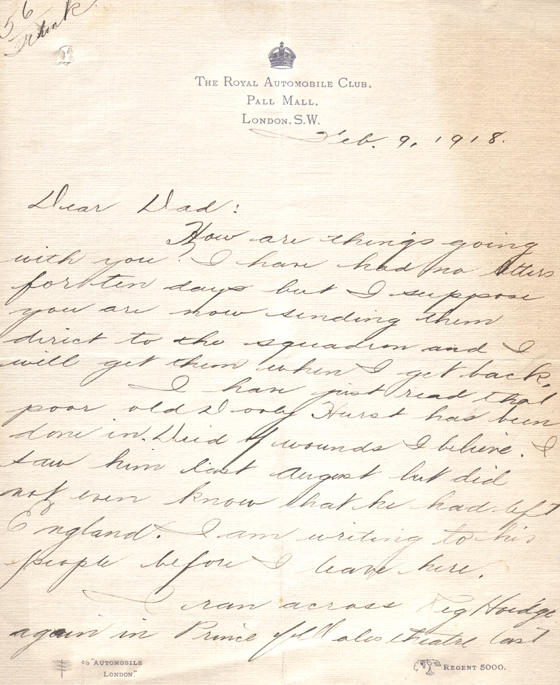 56
THE ROYAL AUTOMOBILE CLUB,
PALL MALL,
LONDON, S.W.
Feb. 9, 1918.
Dear Dad:
How are things going
with you? I have had no letters
for ten days but I suppose
you are now sending them
direct to the squadron and I
will get them when I get back.
I have just read that
poor old Dooly Hurst has been
done in. Died of wounds I believe. I
saw him last August but did
not even know that he had left
England. I am writing to his
people before I leave here.
I ran across Reg
again in Prince of Wales theatre last
"AUTOMOBILE
LONDON."
REGENT 5000.